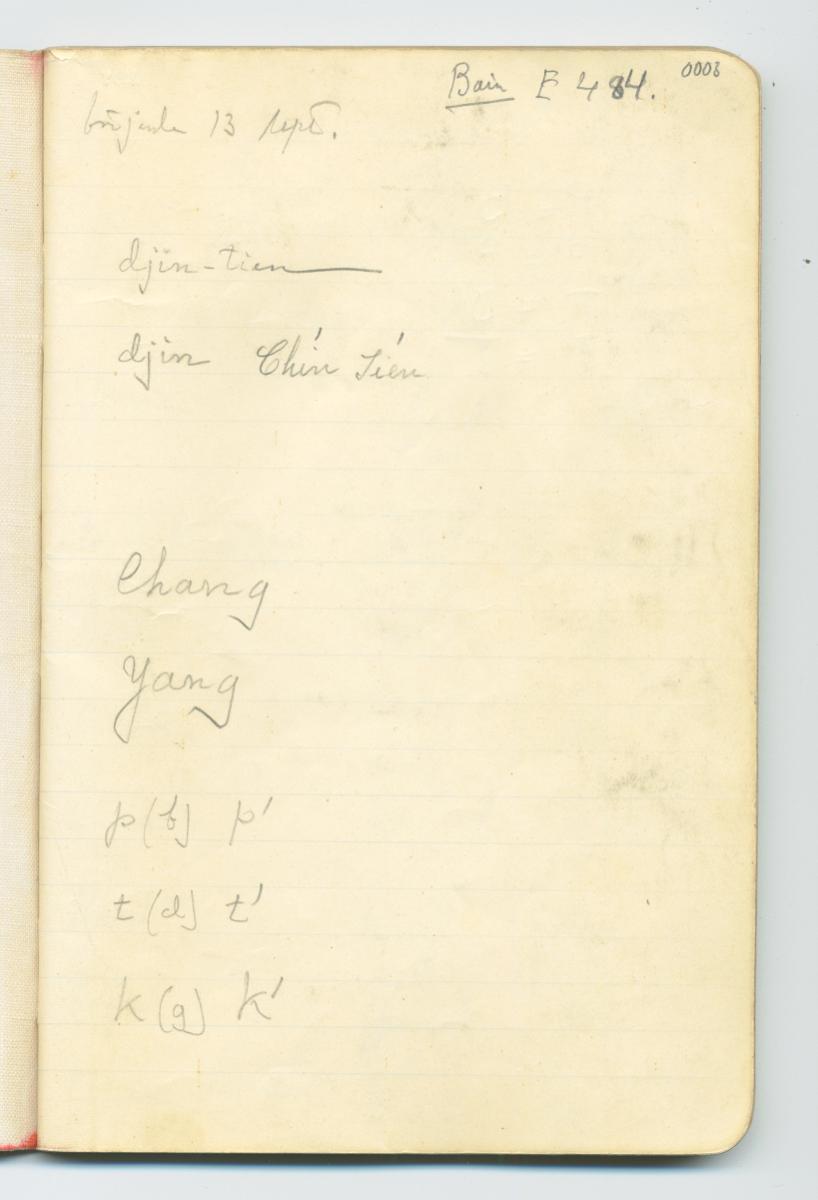 Bain E 484. 0003
började 13 sept.
djin-tien
djin Chín Tién
Chang
Yang
p (b) p'
t (d) t'
k (g) k'